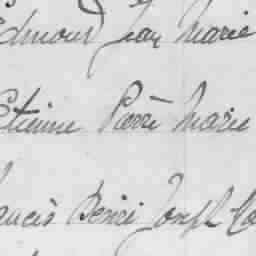 Edmond Jean Marie
Etienne Pierre Marie
Francis Henri Joseph